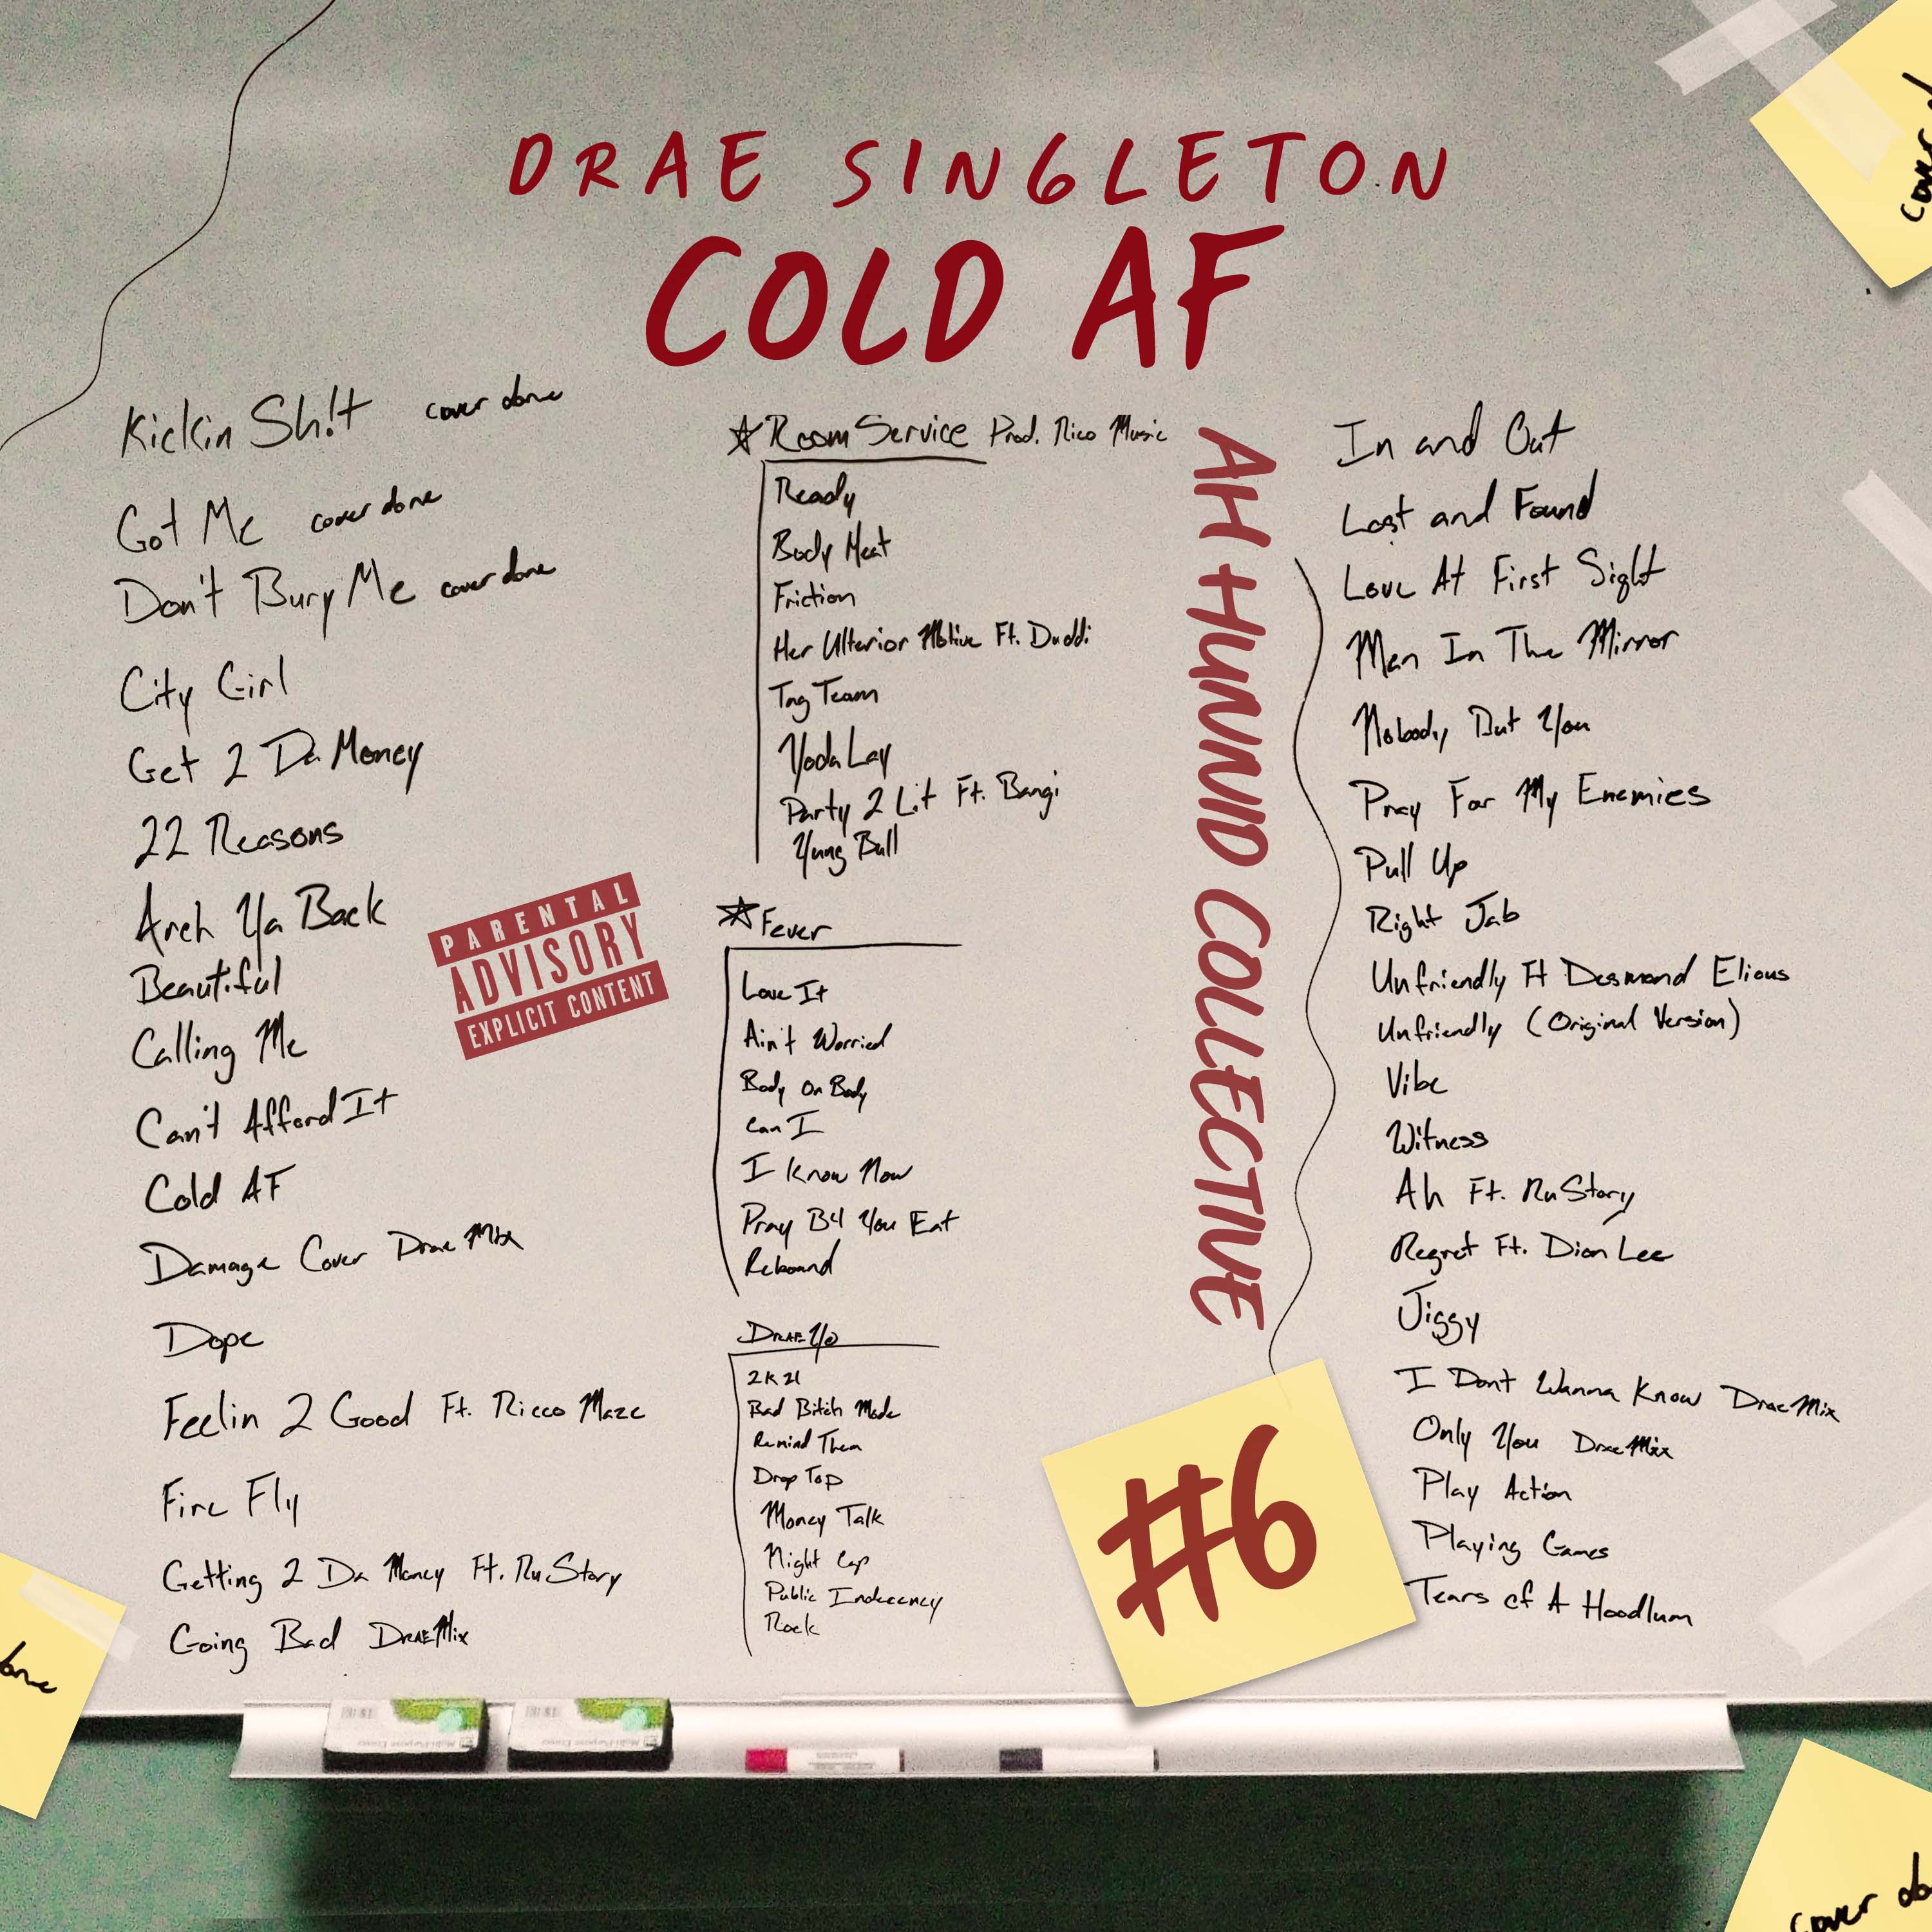 DRAE SINGLETON
COLD AF
Kickin Sh!t cover done
Got Me cover done
Don't Bury Me cover done
City Girl
Get 2 Da Money
22 Reasons
Arch Ya Back
Beautiful
Calling Me
Can't Afford It
Cold AF
Damage Cover DraeMix
Dope
Feelin 2 Good Ft. Ricco Maze
Fire Fly
Getting 2 Da Money Ft. RuStory
Going Bad DRAEMix
PARENTAL
ADVISORY
EXPLICIT CONTENT
Room Service Prod. Rico Music
Ready
Body Heat
Friction
Her Ulterior Motive Ft. Duddi
Tag Team
Yoda Lay
Party 2 Lit Ft. Bangi
Yung Bull
Fever
Love It
Ain't Worried
Body On Body
Can I
I Know Now
Pray B4 You Eat
Rebound
DRAE Yo
2K21
Bad Bitch Mode
Remind Them
Drop Top
Money Talk
Night Cap
Public Indecency
Rock
AH HUNNID COLLECTIVE
In and Out
Lost and Found
Love At First Sight
Man In The Mirror
Nobody But You
Pray For My Enemies
Pull Up
Right Jab
Unfriendly Ft Desmond Elious
Unfriendly (Original Version)
Vibe
Witness
Ah Ft. RuStory
Regret Ft. Dion Lee
Jiggy
I Dont Wanna Know DraeMix
Only You DraeMix
Play Action
Playing Games
Tears of A Hoodlum
#6
cover d
done
cover do